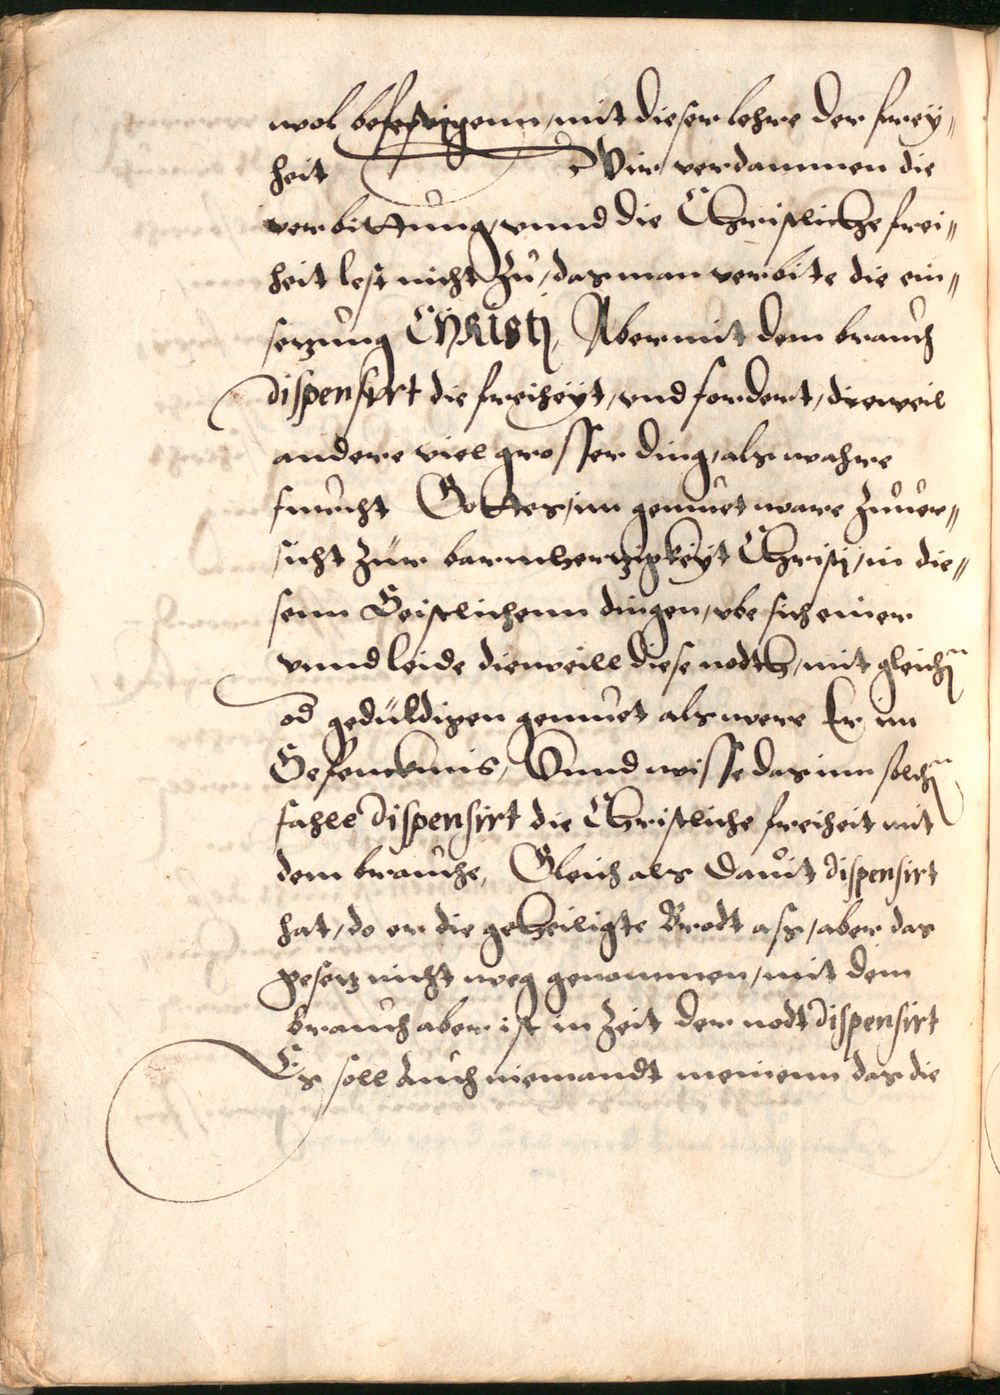 wol befestigenn, mit dieser lehre der frey„
heit Wir verdammen die
verbittung, vnnd die Christliche frei„
heit lest nicht zu, das man verbite die ein„
setzung CHRisti, Aber mit dem brauch
dispensirt die freiheyt, vnd fordert, dieweil
andere viel grosser ding, als wahre
furcht Gottes, im gemuet ware zuuer„
sicht zur barmhertzigkeyt Christi, in die„
senn Geistlichenn dingen, vbe sich einer
vnnd leide dieweill diese nodth, mit gleich
od geduldigen gemuet als were Er im
Gefencknis, Vnnd wisse das inn solch
fahll dispensirt die Christliche freiheit mit
dem brauche, Gleich als Dauit dispensirt
hat, do er die geheiligte Brodt ass, aber das
gesetz nicht weg genommen, mit dem
brauch aber ist in zeit der nodt dispensirt
Es soll Auch niemandt meinenn das die